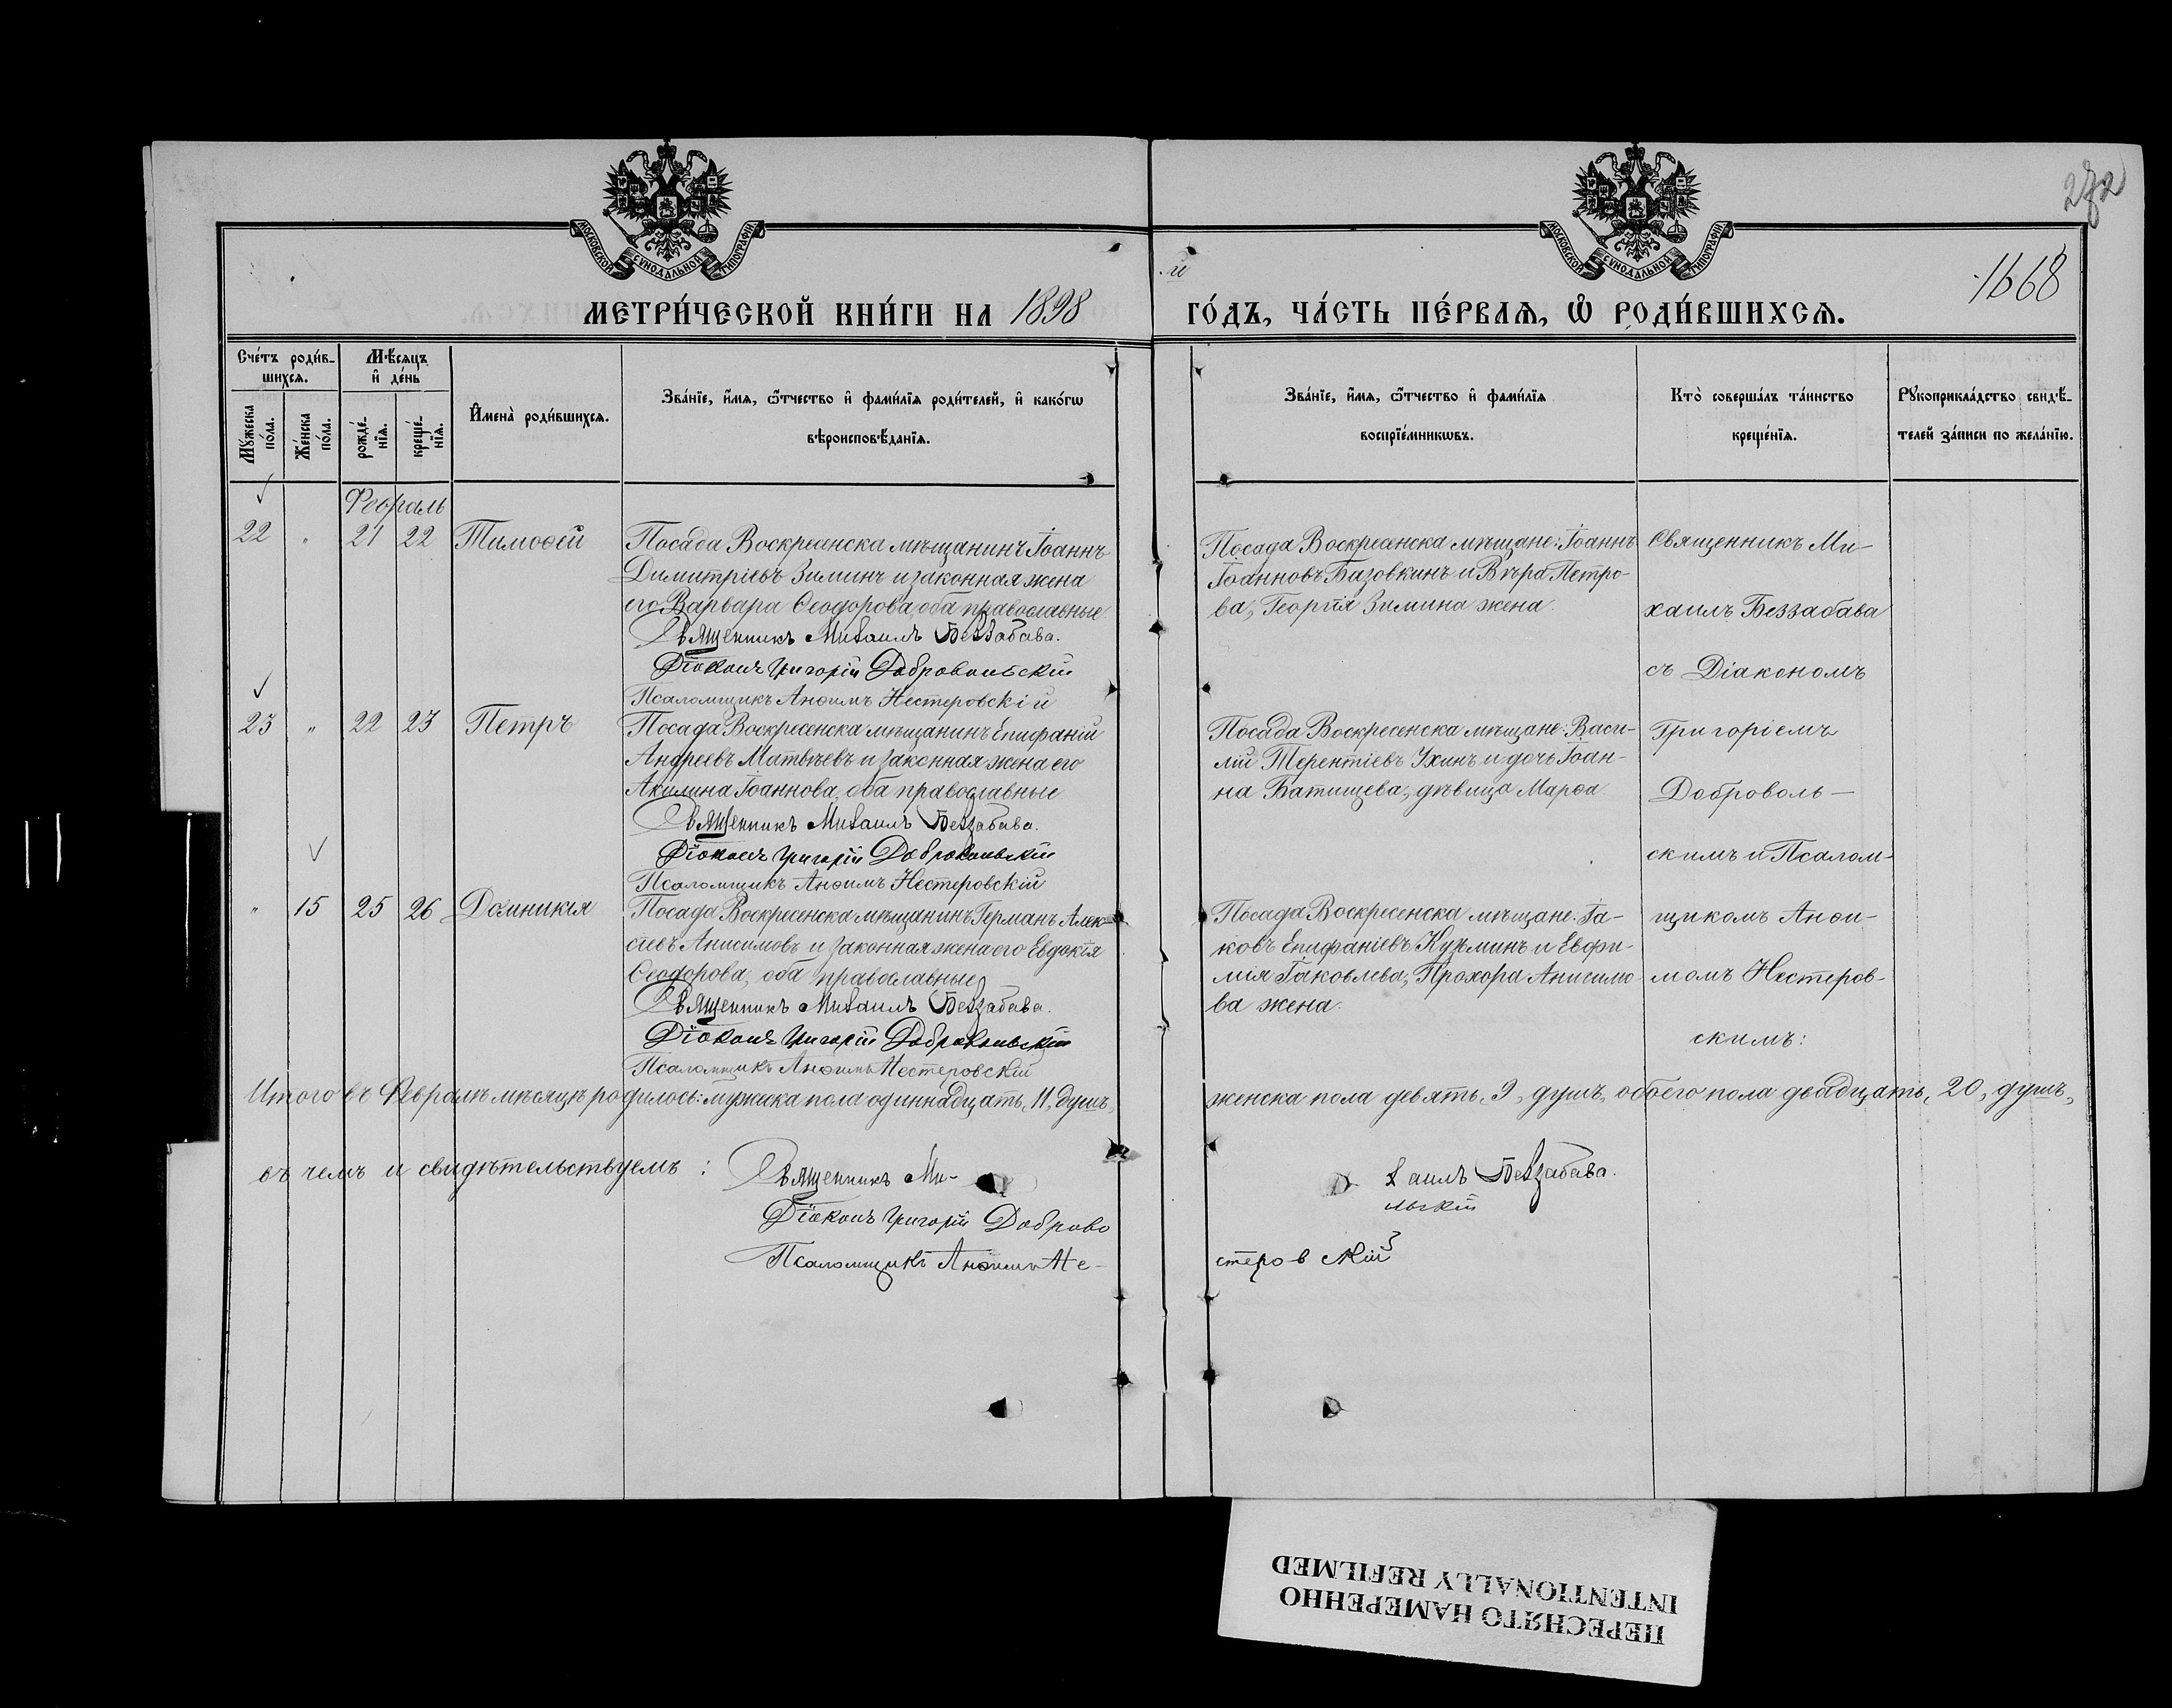 272
1668
МОСКОВСКОЙ СѴНОДАЛЬНОЙ ТИПОГРАФІИ
МОСКОВСКОЙ СѴНОДАЛЬНОЙ ТИПОГРАФІИ
МЕТРИ́ЧЕСКОЙ КНИ́ГИ НА 1898
й
ГО́ДЪ, ЧА́СТЬ ПЕ́РВАѦ, Ѡ҆ РОДИ́ВШИХСѦ.
Сче́тъ роди́в-
шихсѧ.
Мѣ́сяцъ
и҆ де́нь
Мꙋ́жеска по́ла.
Же́нска по́ла.
рожде́-нїѧ.
креще́-нїѧ.
И҆мена̀ роди́вшихсѧ.
Зва́нїе, и҆́мѧ, ѻ҆́тчество и҆ фами́лїѧ роди́телей, и҆ како́гѡ
вѣроисповѣ́данїѧ.
Зва́нїе, и҆́мѧ, ѻ҆́тчество и҆ фами́лїѧ
воспрїе́мникѡвъ.
Кто̀ соверша́лъ та́инство
креще́нїѧ.
Рꙋкоприкла́дство свидѣ́-
телей за́писи по жела́нїю.
Февраль
22 " 21 22 Тимоѳей
Посада Воскресенска мѣщанинъ Іоаннъ
Димитріевъ Зиминъ и законная жена
его Варвара Ѳеодорова, оба православные
Священникъ Михаилъ Беззабава.
Діаконъ Григорій Добровольскій
Псаломщикъ Анѳимъ Нестеровскій
Посада Воскресенска мѣщане: Іоаннъ
Іоанновъ Базовкинъ и Вѣра Петро-
ва, Георгія Зимина жена.
Священникъ Ми-
хаилъ Беззабава
съ Діакономъ
23 " 22 23 Петръ
Посада Воскресенска мѣщанинъ Епифаній
Андреевъ Матвѣевъ и законная жена его
Акилина Іоаннова, оба православные
Священникъ Михаилъ Беззабава.
Діаконъ Григорій Добровольскій
Псаломщикъ Анѳимъ Нестеровскій
Посада Воскресенска мѣщане: Васи-
лій Терентіевъ Ухинъ и дочь Іоан-
на Батищева, дѣвица Марѳа
Григоріемъ
Доброволь-
скимъ и Псалом-
" 15 25 26 Домникія
Посада Воскресенска мѣщанинъ Германъ Алек-
сѣевъ Анисимовъ и законная жена его Евдокія
Ѳеодорова, оба православные
Священникъ Михаилъ Беззабава.
Діаконъ Григорій Добровольскій
Псаломщикъ Анѳимъ Нестеровскій
Посада Воскресенска мѣщане: Іа-
ковъ Епифаніевъ Кузминъ и Евфи-
мія Іаковлева, Прохора Анисимо
ва жена.
щикомъ Анѳи-
момъ Нестеров-
скимъ:
Итого въ Февралѣ мѣсяцѣ родилось: мужска пола одиннадцать, 11, душъ, женска пола девять, 9, душъ, обоего пола двадцать, 20, душъ,
въ чемъ и свидѣтельствуемъ: Священникъ Ми- хаилъ Беззабава.
Діаконъ Григорій Доброво льскій
Псаломщикъ Анѳимъ Не- стеровскій
ПЕРЕСНЯТО НАМЕРЕННО
INTENTIONALLY REFILMED